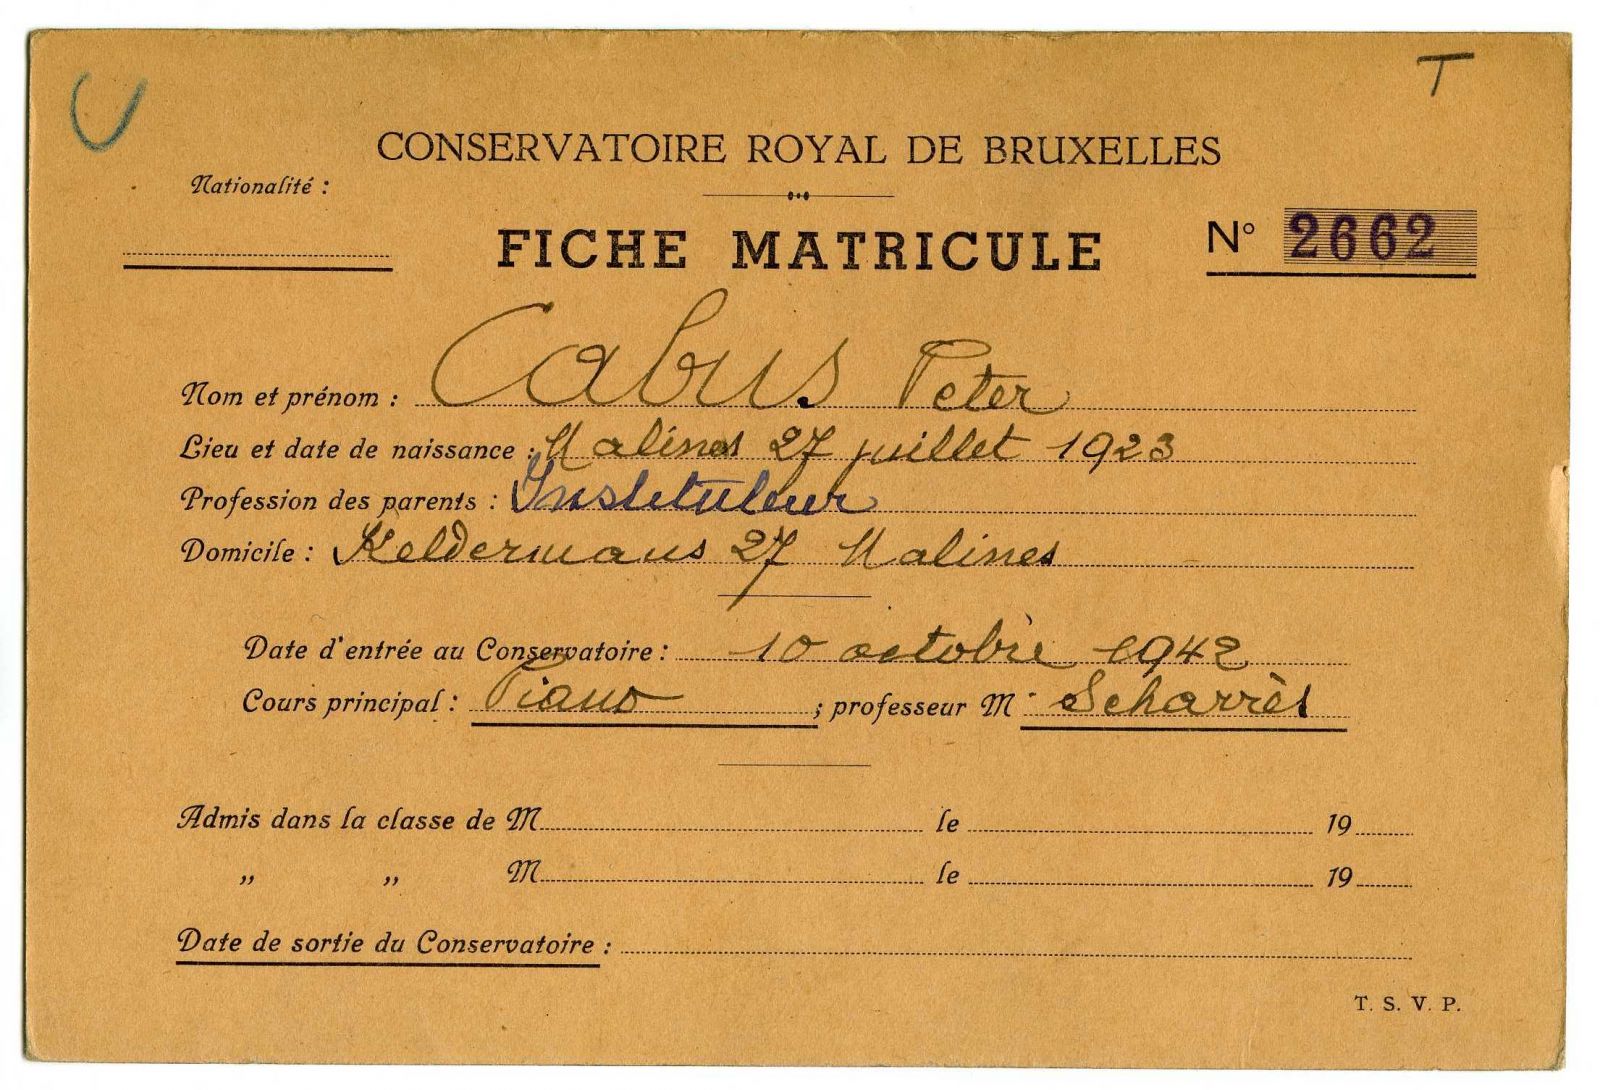 U
T
CONSERVATOIRE ROYAL DE BRUXELLES
Nationalité :
FICHE MATRICULE
N° 2662
Nom et prénom : Cabus Peter
Lieu et date de naissance : Malines 27 juillet 1923
Profession des parents : Instituteur
Domicile : Keldermans 27 Malines
Date d'entrée au Conservatoire : 10 octobre 1942
Cours principal : Piano ; professeur M Scharrès
Admis dans la classe de M le 19
„ „ M le 19
Date de sortie du Conservatoire :
T. S. V. P.